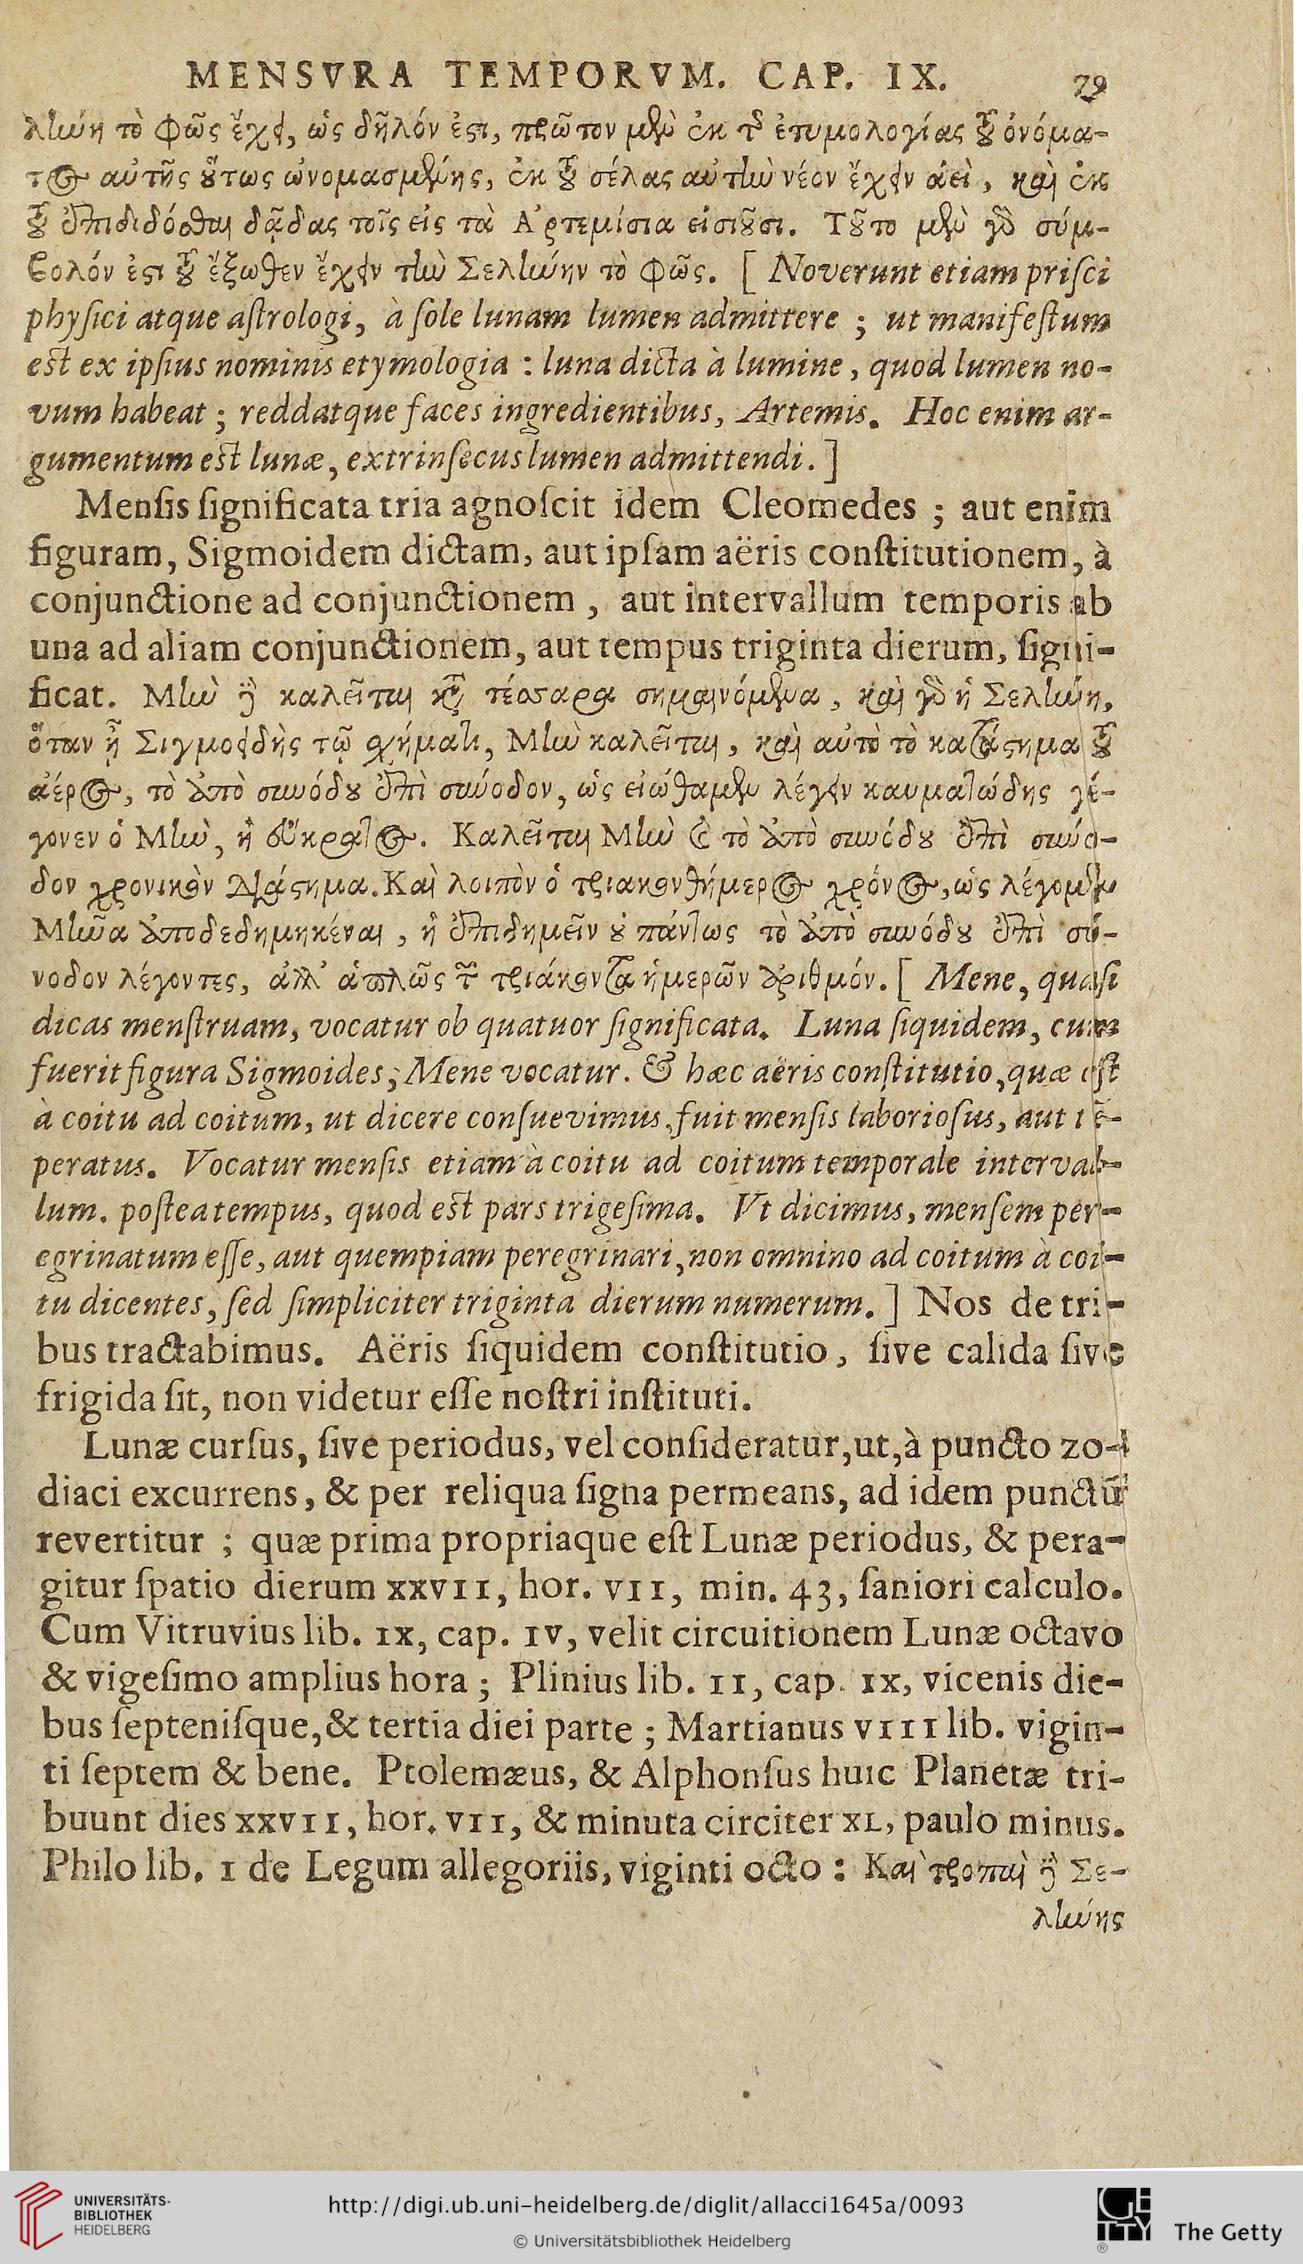 MENSVRA TEMPORVM. CAP. IX. 79
λήνη τὸ φῶς ἔχει, ὡς δῆλόν ἐστι, πρῶτον μὲν ἐκ τῆς ἐτυμολογίας τοῦ ὀνόμα-
τος αὐτῆς οὕτως ὠνομασμένης, ἐκ τοῦ σέλας αὐτὴν νέον ἔχειν ἀεὶ, καὶ ἐκ
τοῦ ἐπιδίδοσθαι δᾷδας τοῖς εἰς τὰ Ἀρτεμίσια εἰσιοῦσι. Τοῦτο μὲν γὰρ σύμ-
βολόν ἐστι τοῦ ἔξωθεν ἔχειν τὴν Σελήνην τὸ φῶς. [ Noverunt etiam priſci
phyſici atque aſtrologi, à ſole lunam lumen admittere ; ut manifeſtum
est ex ipſius nominis etymologia : luna dicta à lumine, quod lumen no-
vum habeat ; reddatque faces ingredientibus, Artemis. Hoc enim ar-
gumentum est lunæ, extrinſecus lumen admittendi. ]
Menſis ſignificata tria agnoſcit idem Cleomedes ; aut enim
figuram, Sigmoidem dictam, aut ipſam aëris conſtitutionem, à
conjunctione ad conjunctionem, aut intervallum temporis ab
una ad aliam conjunctionem, aut tempus triginta dierum, ſigni-
ficat. Μὴν δὲ καλεῖται κατὰ τέσσαρα σημαινόμενα, καὶ γὰρ ἡ Σελήνη,
ὅταν ᾖ Σιγμοειδὴς τῷ σχήματι, Μὴν καλεῖται, καὶ αὐτὸ τὸ κατάστημα τοῦ
ἀέρος, τὸ ἀπὸ συνόδου ἐπὶ σύνοδον, ὡς εἰώθαμεν λέγειν καυματώδης γέ-
γονεν ὁ Μὴν, ἢ εὔκρατος. Καλεῖται Μὴν καὶ τὸ ἀπὸ συνόδου ἐπὶ σύνο-
δον χρονικὸν διάστημα. Καὶ λοιπὸν ὁ τριακονθήμερος χρόνος, ὡς λέγομεν
Μῆνα ἀποδεδημηκέναι, ἢ ἐπιδημεῖν οὐ πάντως τὸ ἀπὸ συνόδου ἐπὶ σύ-
νοδον λέγοντες, ἀλλ' ἁπλῶς τὸν τριάκοντα ἡμερῶν ἀριθμόν. [ Mene, quaſi
dicas menſtruam, vocatur ob quatuor ſignificata. Luna ſiquidem, cum
fuerit figura Sigmoides, Mene vocatur. & hæc aëris conſtitutio, quæ eſt
à coitu ad coitum, ut dicere conſuevimus, fuit menſis laborioſus, aut tē-
peratus. Vocatur menſis etiam à coitu ad coitum temporale interval-
lum. poſtea tempus, quod est pars trigeſima. Vt dicimus, menſem per-
egrinatum eſſe, aut quempiam peregrinari, non omnino ad coitum à coi-
tu dicentes, ſed ſimpliciter triginta dierum numerum. ] Nos de tri-
bus tractabimus. Aëris ſiquidem conſtitutio, ſive calida ſive
frigida ſit, non videtur eſſe noſtri inſtituti.
Lunæ curſus, ſive periodus, vel conſideratur, ut, à puncto zo-
diaci excurrens, & per reliqua ſigna permeans, ad idem punctū
revertitur ; quæ prima propriaque eſt Lunæ periodus, & pera-
gitur ſpatio dierum xxvII, hor. vII, min. 43, ſaniori calculo.
Cum Vitruvius lib. Ix, cap. Iv, velit circuitionem Lunæ octavo
& vigeſimo amplius hora ; Plinius lib. II, cap. Ix, vicenis die-
bus ſepteniſque, & tertia diei parte ; Martianus vIII lib. vigin-
ti ſeptem & bene. Ptolemæus, & Alphonſus huic Planetæ tri-
buunt dies xxvII, hor. vII, & minuta circiter xL, paulo minus.
Philo lib. I de Legum allegoriis, viginti octo : Καὶ τροπαὶ δὲ Σε-
λήνης
UNIVERSITÄTS-
BIBLIOTHEK
HEIDELBERG
http://digi.ub.uni-heidelberg.de/diglit/allacci1645a/0093
© Universitätsbibliothek Heidelberg
GETTY
®
The Getty